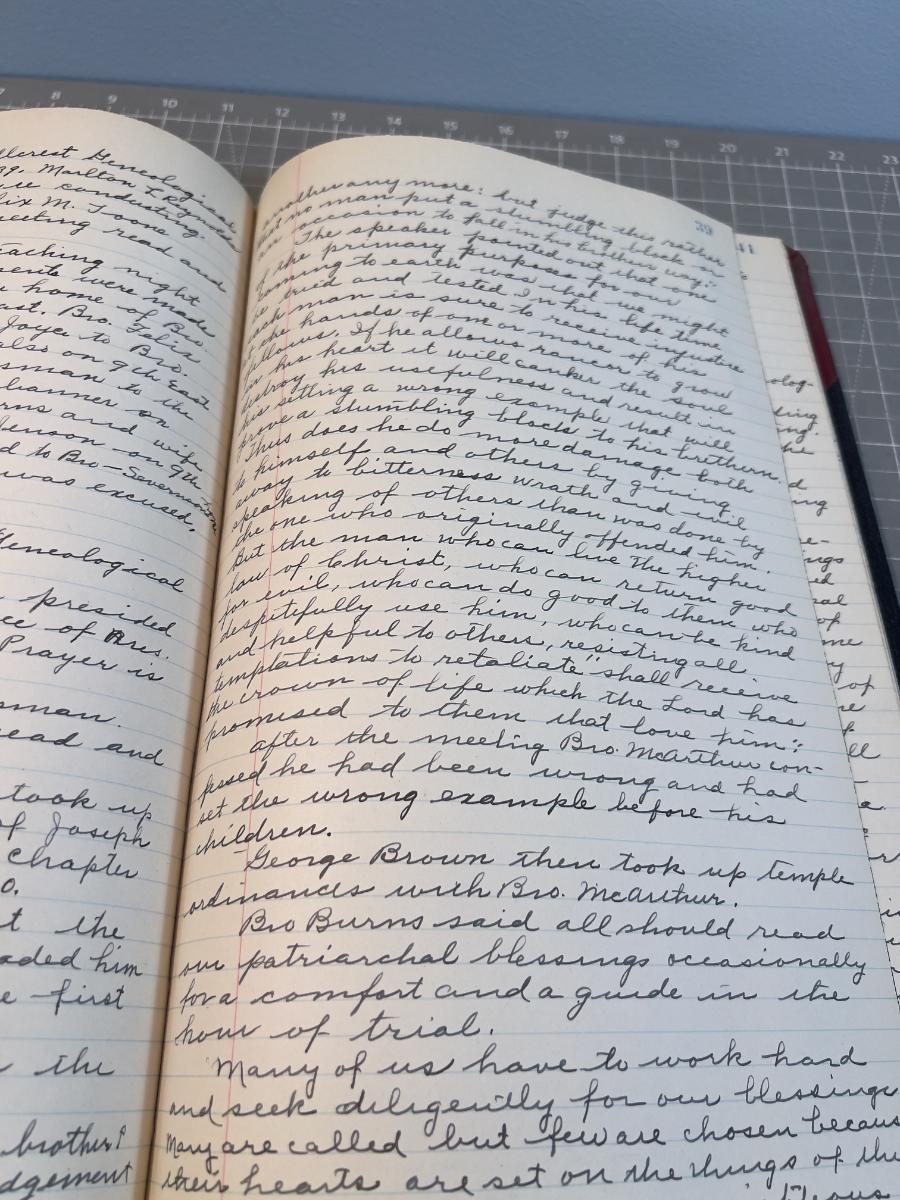 7 8 9 10 11 12 13 14 15 16 17 18 19 20 21 22 23
Geneological
39, Marlton L Rynearson
conducting.
M. Toone
meeting read and
aching night
ments were made
home of Bro.
ast. Bro. Felix
Joyce to Bro.
also on 9th East
sman to the
on
rns and wife
on 9th
d to Bro-Severinsen
was excused.
Geneological
presided
ce of Pres.
Prayer is
sman.
ead and
took up
of Joseph
chapter
0.
t the
aded him
e first
the
brother?
dgement
39
another any more: but judge this rather
that no man put a stumbling block or
an occasion to fall in his brothers way."
The speaker pointed out that one
of the primary purposes for our
coming to earth was that we might
be tried and tested. In his life time
each man is sure to receive injustice
at the hands of one or more of his
fellows. If he allows rancor to grow
in his heart it will canker the soul
destroy his usefulness and result in
his setting a wrong example that will
prove a stumbling block to his brethern.
Thus does he do more damage both
to himself and others by giving
away to bitterness wrath and evil
speaking of others than was done by
the one who originally offended him.
But the man who can live the higher
law of Christ, who can return good
for evil, who can do good to them who
despitefully use him, who can be kind
and helpful to others, resisting all
temptations to retaliate "shall receive
the crown of life which the Lord has
promised to them that love him":
after the meetig Bro. McArthur con-
fessed he had been wrong and had
set the wrong example before his
children.
George Brown then took up temple
ordinances with Bro. McArthur.
Bro Burns said all should read
our patriarchal blessings occasionally
for a comfort and a guide in the
hour of trial.
Many of us have to work hard
and seek diligently for our blessings
Many are called but few are chosen becaus
their hearts are set on the things of the
41
olog-